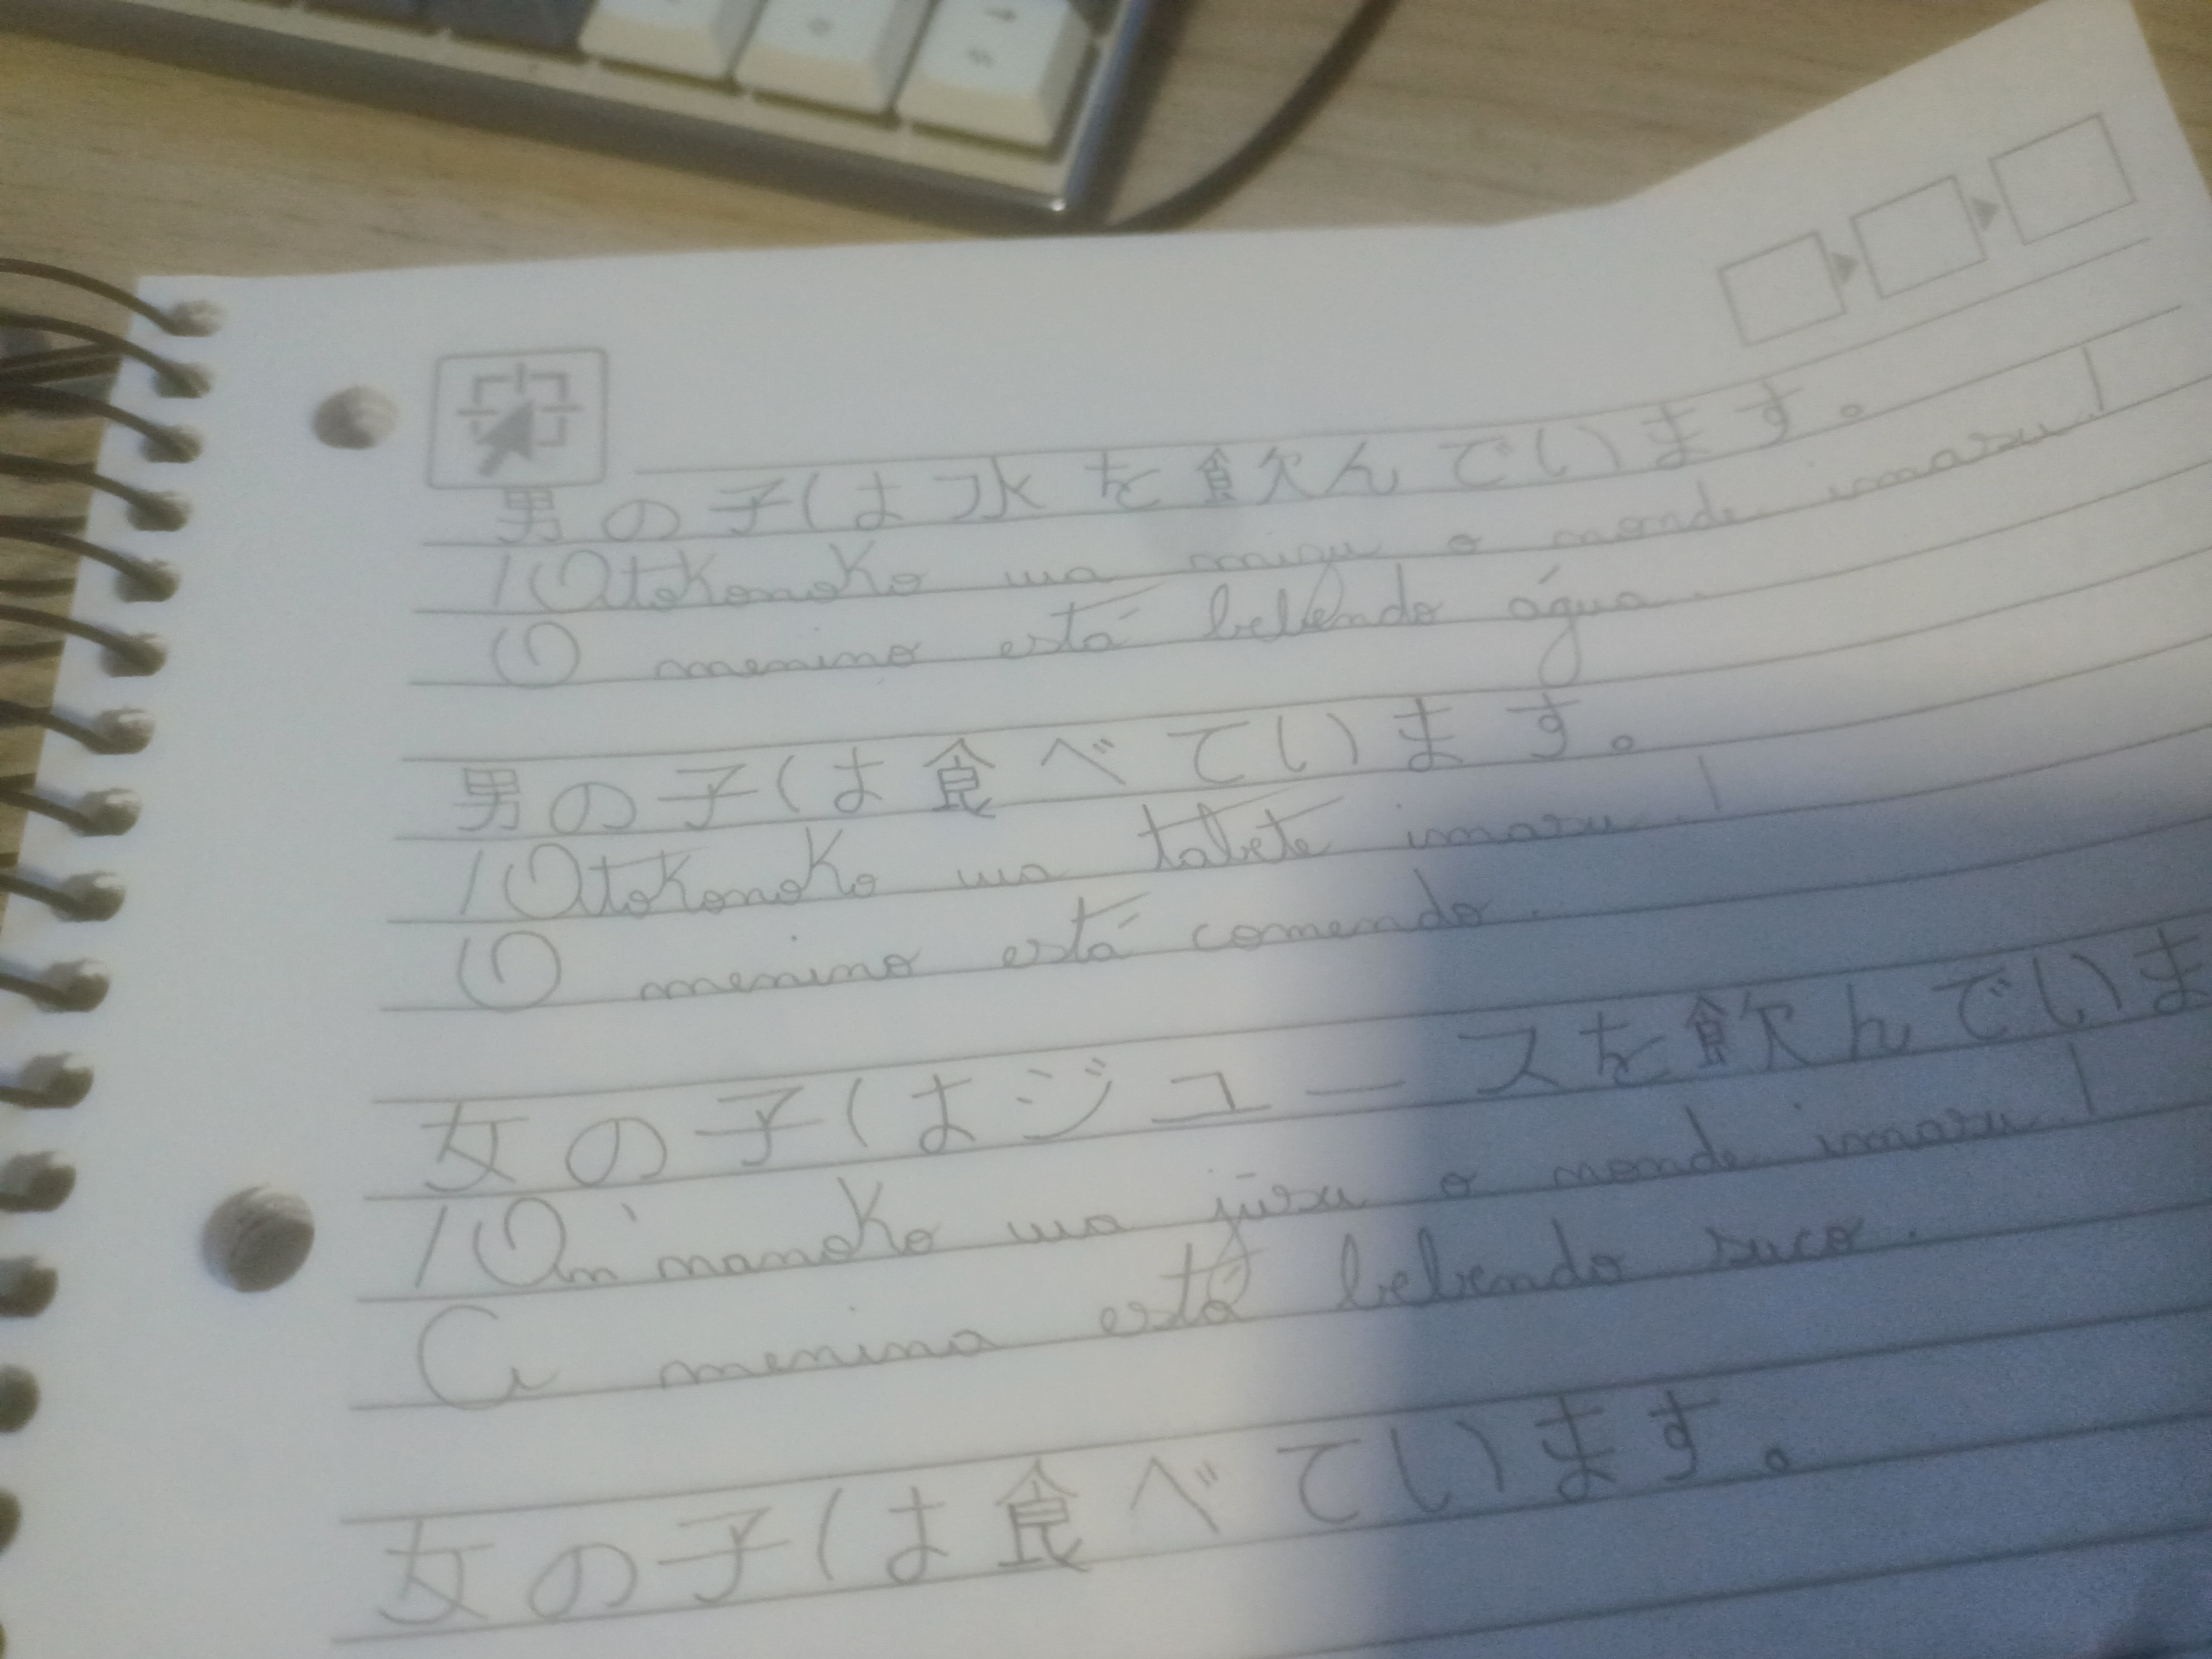 男の子は水を飲んでいます。
/Otokonoko wa mizu o nonde imasu/
O menino está bebendo água.
男の子は食べています。
/Otokonoko wa tabete imasu./
O menino está comendo.
女の子はジュースを飲んでいま
/On'nanoko wa jūsu o nonde imasu./
A menina está bebendo suco.
女の子は食べています。